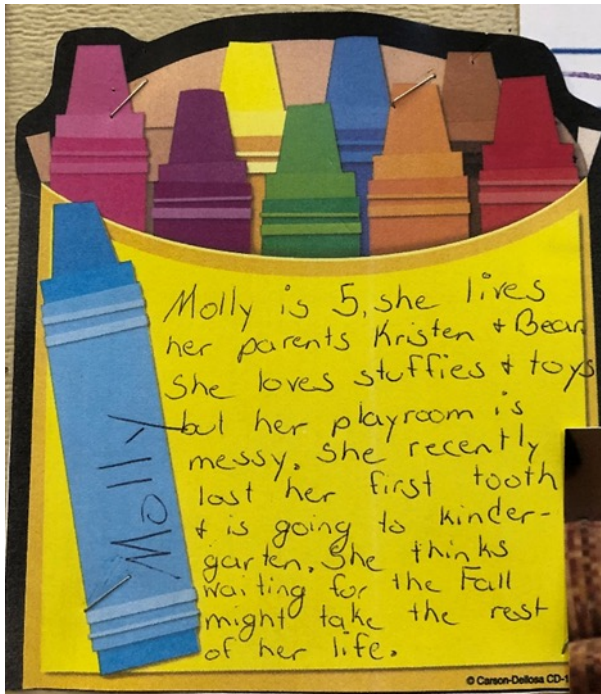 Molly is 5, she lives
her parents Kristen + Bear
She loves stuffies + toys
but her playroom is
messy. She recently
lost her first tooth
+ is going to kinder-
garten. She thinks
waiting for the Fall
might take the rest
of her life.
Molly
© Carson-Dellosa CD-1